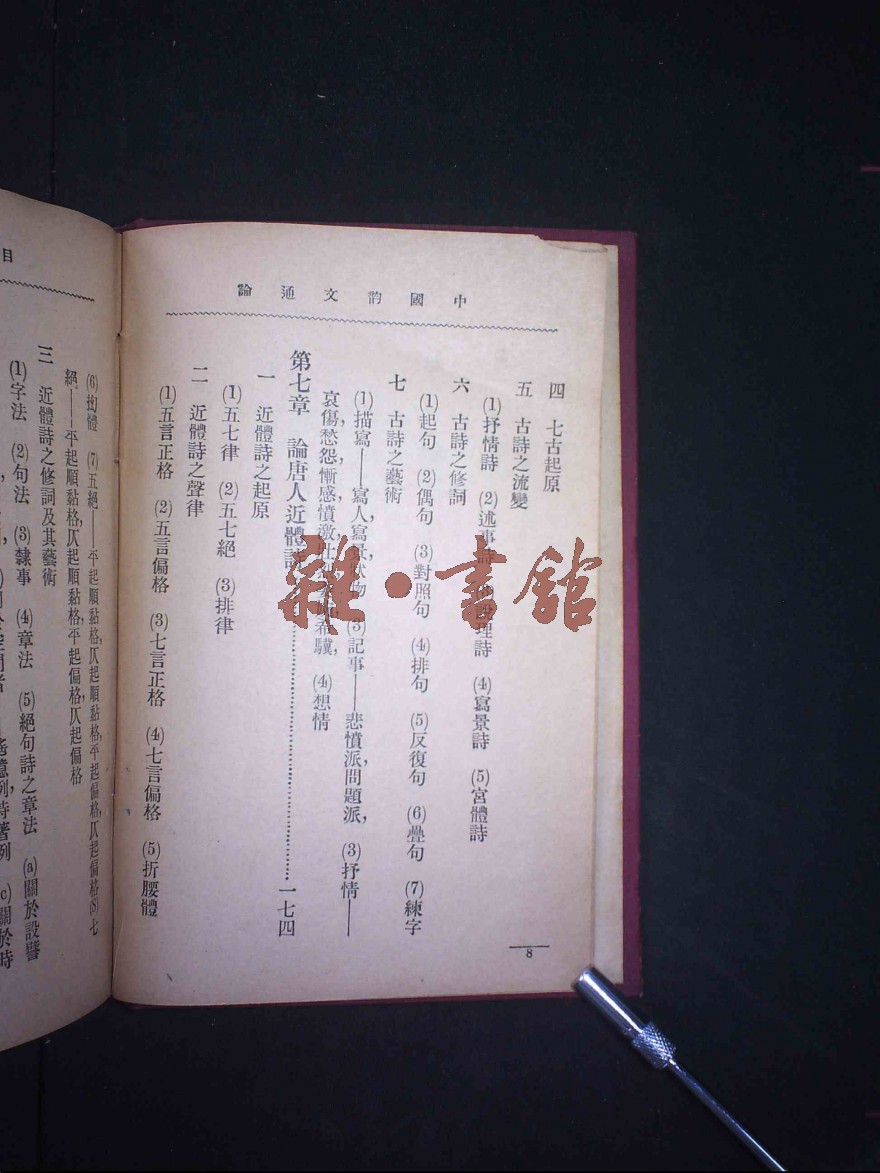 中國韵文通論
四　七古起原
五　古詩之流變
(1)抒情詩　(2)述事詩　理詩　(4)寫景詩　(5)宮體詩
六　古詩之修詞
(1)起句　(2)偶句　(3)對照句　(4)排句　(5)反復句　(6)疊句　(7)練字
七　古詩之藝術
(1)描寫——寫人，寫景，狀物，(3)記事——悲憤派，問題派，(3)抒情——
哀傷，愁怨，慚感，憤激，壯　(4)想情
第七章　論唐人近體詩……一七四
一　近體詩之起原
(1)五七律　(2)五七絕　(3)排律
二　近體詩之聲律
(1)五言正格　(2)五言偏格　(3)七言正格　(4)七言偏格　(5)折腰體
8
雜·書館
目
(6)拗體　(7)五絕——平起順黏格，仄起順黏格，平起偏格，仄起偏格(8)七
絕——平起順黏格，仄起順黏格，平起偏格，仄起偏格
三　近體詩之修詞及其藝術
(1)字法　(2)句法　(3)隸事　(4)章法　(5)絕句詩之章法　(a)關於設譬
(c)關於時